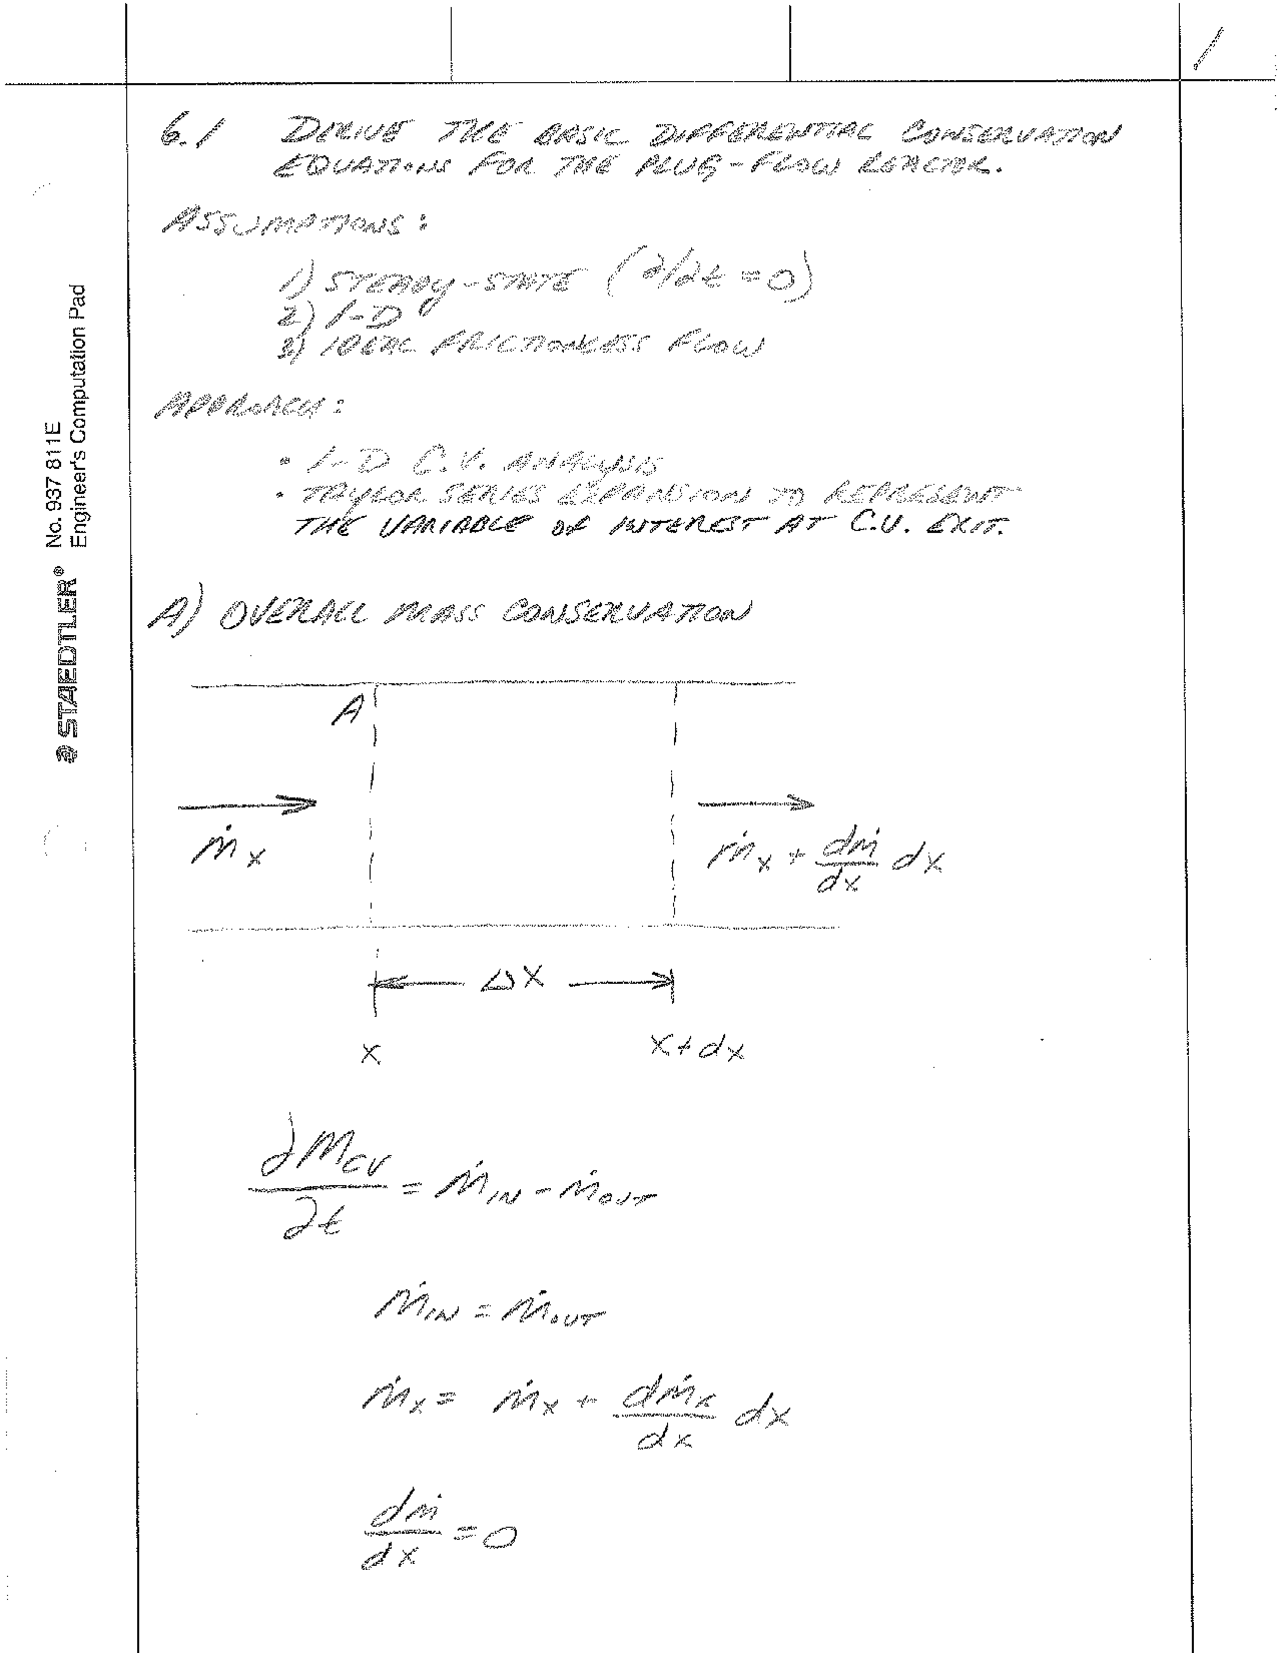 1
6.1 DERIVE THE BASIC DIFFERENTIAL CONSERVATION
EQUATIONS FOR THE PLUG-FLOW REACTOR.
ASSUMPTIONS:
1) STEADY-STATE (∂/∂t = 0)
2) 1-D
3) IDEAL FRICTIONLESS FLOW
APPROACH:
• 1-D C.V. ANALYSIS
• TAYLOR SERIES EXPANSION TO REPRESENT
THE VARIABLE OF INTEREST AT C.V. EXIT.
A) OVERALL MASS CONSERVATION
A
ṁx
ṁx + dṁ/dx dx
ΔX
x
x+dx
∂Mcv/∂t = ṁIN - ṁOUT
ṁIN = ṁOUT
ṁx = ṁx + dṁx/dx dx
dṁ/dx = 0
STAEDTLER® No. 937 811E
Engineer's Computation Pad